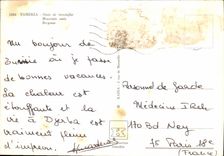 TUNISIA
Un bonjour de
Tunisie où je passe
de bonnes vacances.
La chaleur est
étouffante et la
vie à Djerba est
vraiment pleine
d'imprévu.
Personnel de Garde
Médecine Infantile
170 Bd Ney
75 Paris 18e
(France)